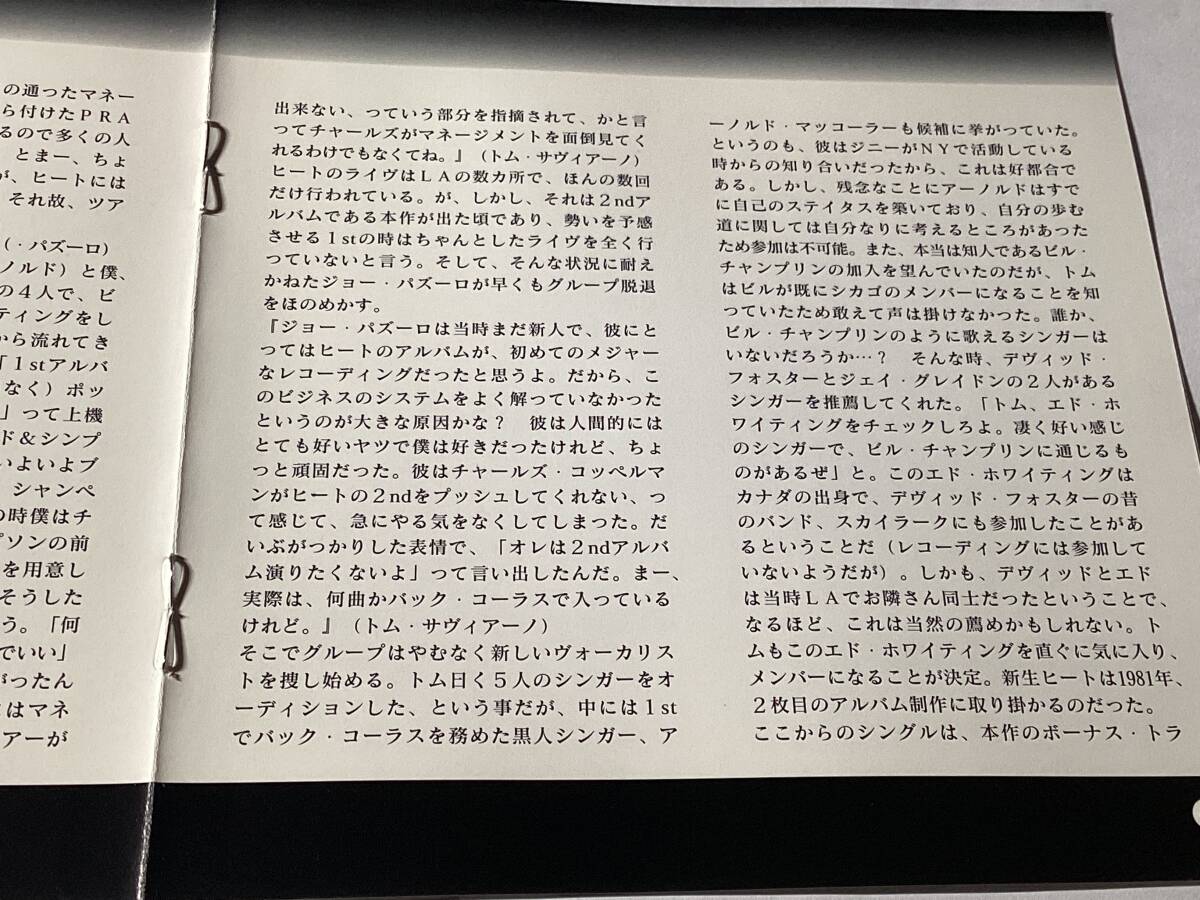 の通ったマネー
ら付けたPRA
るので多くの人
とまー、ちょ
が、ヒートには
それ故、ツア
(・パズーロ)
ノルド)と僕、
の4人で、ビ
ティングをし
から流れてき
「1stアルバ
なく)ポッ
」って上機
ド&シンプ
いよいよブ
シャンペ
の時僕はチ
プソンの前
を用意し
そうした
う。「何
でいい」
がったん
はマネ
アーが
出来ない、っていう部分を指摘されて、かと言
ってチャールズがマネージメントを面倒見てく
れるわけでもなくてね。』(トム・サヴィアーノ)
ヒートのライヴはLAの数カ所で、ほんの数回
だけ行われている。が、しかし、それは2ndア
ルバムである本作が出た頃であり、勢いを予感
させる1stの時はちゃんとしたライヴを全く行
っていないと言う。そして、そんな状況に耐え
かねたジョー・パズーロが早くもグループ脱退
をほのめかす。
『ジョー・パズーロは当時まだ新人で、彼にと
ってはヒートのアルバムが、初めてのメジャー
なレコーディングだったと思うよ。だから、こ
のビジネスのシステムをよく解っていなかった
というのが大きな原因かな? 彼は人間的には
とても好いヤツで僕は好きだったけれど、ちょ
っと頑固だった。彼はチャールズ・コッペルマ
ンがヒートの2ndをプッシュしてくれない、っ
て感じて、急にやる気をなくしてしまった。だ
いぶがつかりした表情で、「オレは2ndアルバ
ム演りたくないよ」って言い出したんだ。まー、
実際は、何曲かバック・コーラスで入っている
けれど。』(トム・サヴィアーノ)
そこでグループはやむなく新しいヴォーカリス
トを捜し始める。トム曰く5人のシンガーをオ
ーディションした、という事だが、中には1st
でバック・コーラスを務めた黒人シンガー、ア
ーノルド・マッコーラーも候補に挙がっていた。
というのも、彼はジニーがNYで活動している
時からの知り合いだったから、これは好都合で
ある。しかし、残念なことにアーノルドはすで
に自己のステイタスを築いており、自分の歩む
道に関しては自分なりに考えるところがあった
ため参加は不可能。また、本当は知人であるビル・
チャンプリンの加入を望んでいたのだが、トム
はビルが既にシカゴのメンバーになることを知
っていたため敢えて声は掛けなかった。誰か、
ビル・チャンプリンのように歌えるシンガーは
いないだろうか…? そんな時、デヴィッド・
フォスターとジェイ・グレイドンの2人がある
シンガーを推薦してくれた。「トム、エド・ホ
ワイティングをチェックしろよ。凄く好い感じ
のシンガーで、ビル・チャンプリンに通じるも
のがあるぜ」と。このエド・ホワイティングは
カナダの出身で、デヴィッド・フォスターの昔
のバンド、スカイラークにも参加したことがあ
るということだ(レコーディングには参加して
いないようだが)。しかも、デヴィッドとエド
は当時LAでお隣さん同士だったということで、
なるほど、これは当然の薦めかもしれない。ト
ムもこのエド・ホワイティングを直ぐに気に入り、
メンバーになることが決定。新生ヒートは1981年、
2枚目のアルバム制作に取り掛かるのだった。
ここからのシングルは、本作のボーナス・トラ